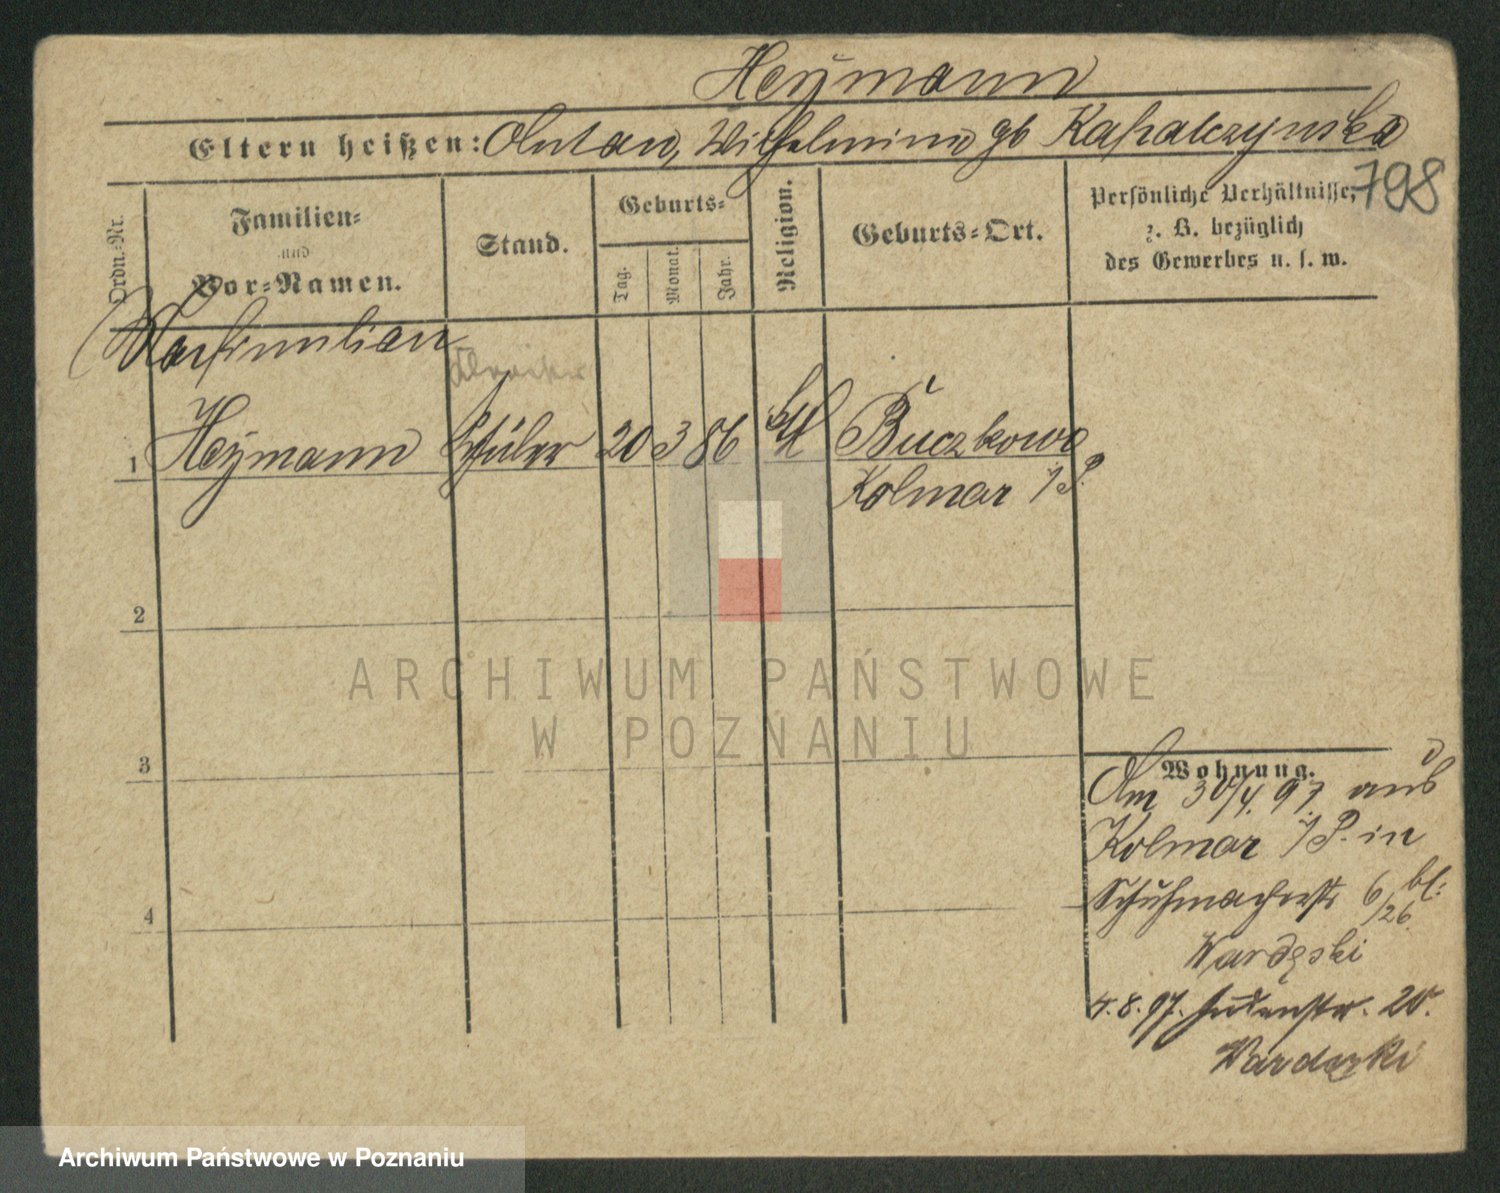 Heymann
Eltern heißen: Anton, Wilhelmine gb Kasp
798
Ordn.-Nr.
Familien-
und
Vor-Namen.
Stand.
Geburts-
Tag.
Monat.
Jahr.
Religion.
Geburts-Ort.
Persönliche Verhältnisse,
z. B. bezüglich
des Gewerbes u. s. w.
Maximilian
1 Heymann Schüler 20 3 86 kth Buczkowo
Kolmar i/P.
2
3
4
Wohnung.
Am 30/4. 97. aus
Kolmar i/P. in
Schuhmacherstr 6/26 bl:
Wardęski
4.8.97. Judenstr. 20.
Wardęski
ARCHIWUM PAŃSTWOWE
W POZNANIU
Archiwum Państwowe w Poznaniu